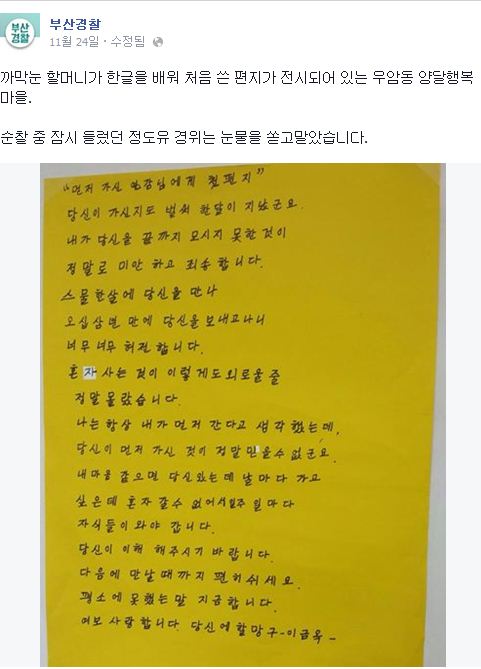 부산경찰
부산경찰
11월 24일 · 수정됨
까막눈 할머니가 한글을 배워 처음 쓴 편지가 전시되어 있는 우암동 양달행복
마을.
순찰 중 잠시 들렀던 정도유 경위는 눈물을 쏟고말았습니다.
"먼저 가신 영감님에게 첫편지"
당신이 가신지도 벌써 한달이 지났군요.
내가 당신을 끝까지 모시지 못한것이
정말로 미안 하고 죄송합니다.
스물한살에 당신을 만나
오십삼년 만에 당신을 보내고나니
너무 너무 허전합니다.
혼자 사는 것이 이렇게도 외로울 줄
정말 몰랐습니다.
나는 항상 내가 먼저 간다고 생각했는데,
당신이 먼저 가신 것이 정말 믿을수 없군요.
내마음 같으면 당신있는데 날마다 가고
싶은데 혼자 갈수 없어서 일주일마다
자식들이 와야 갑니다.
당신이 이해 해주시기 바랍니다.
다음에 만날때까지 편히쉬세요.
평소에 못했는말 지금합니다.
여보 사랑합니다. 당신에 할망구-이금옥-